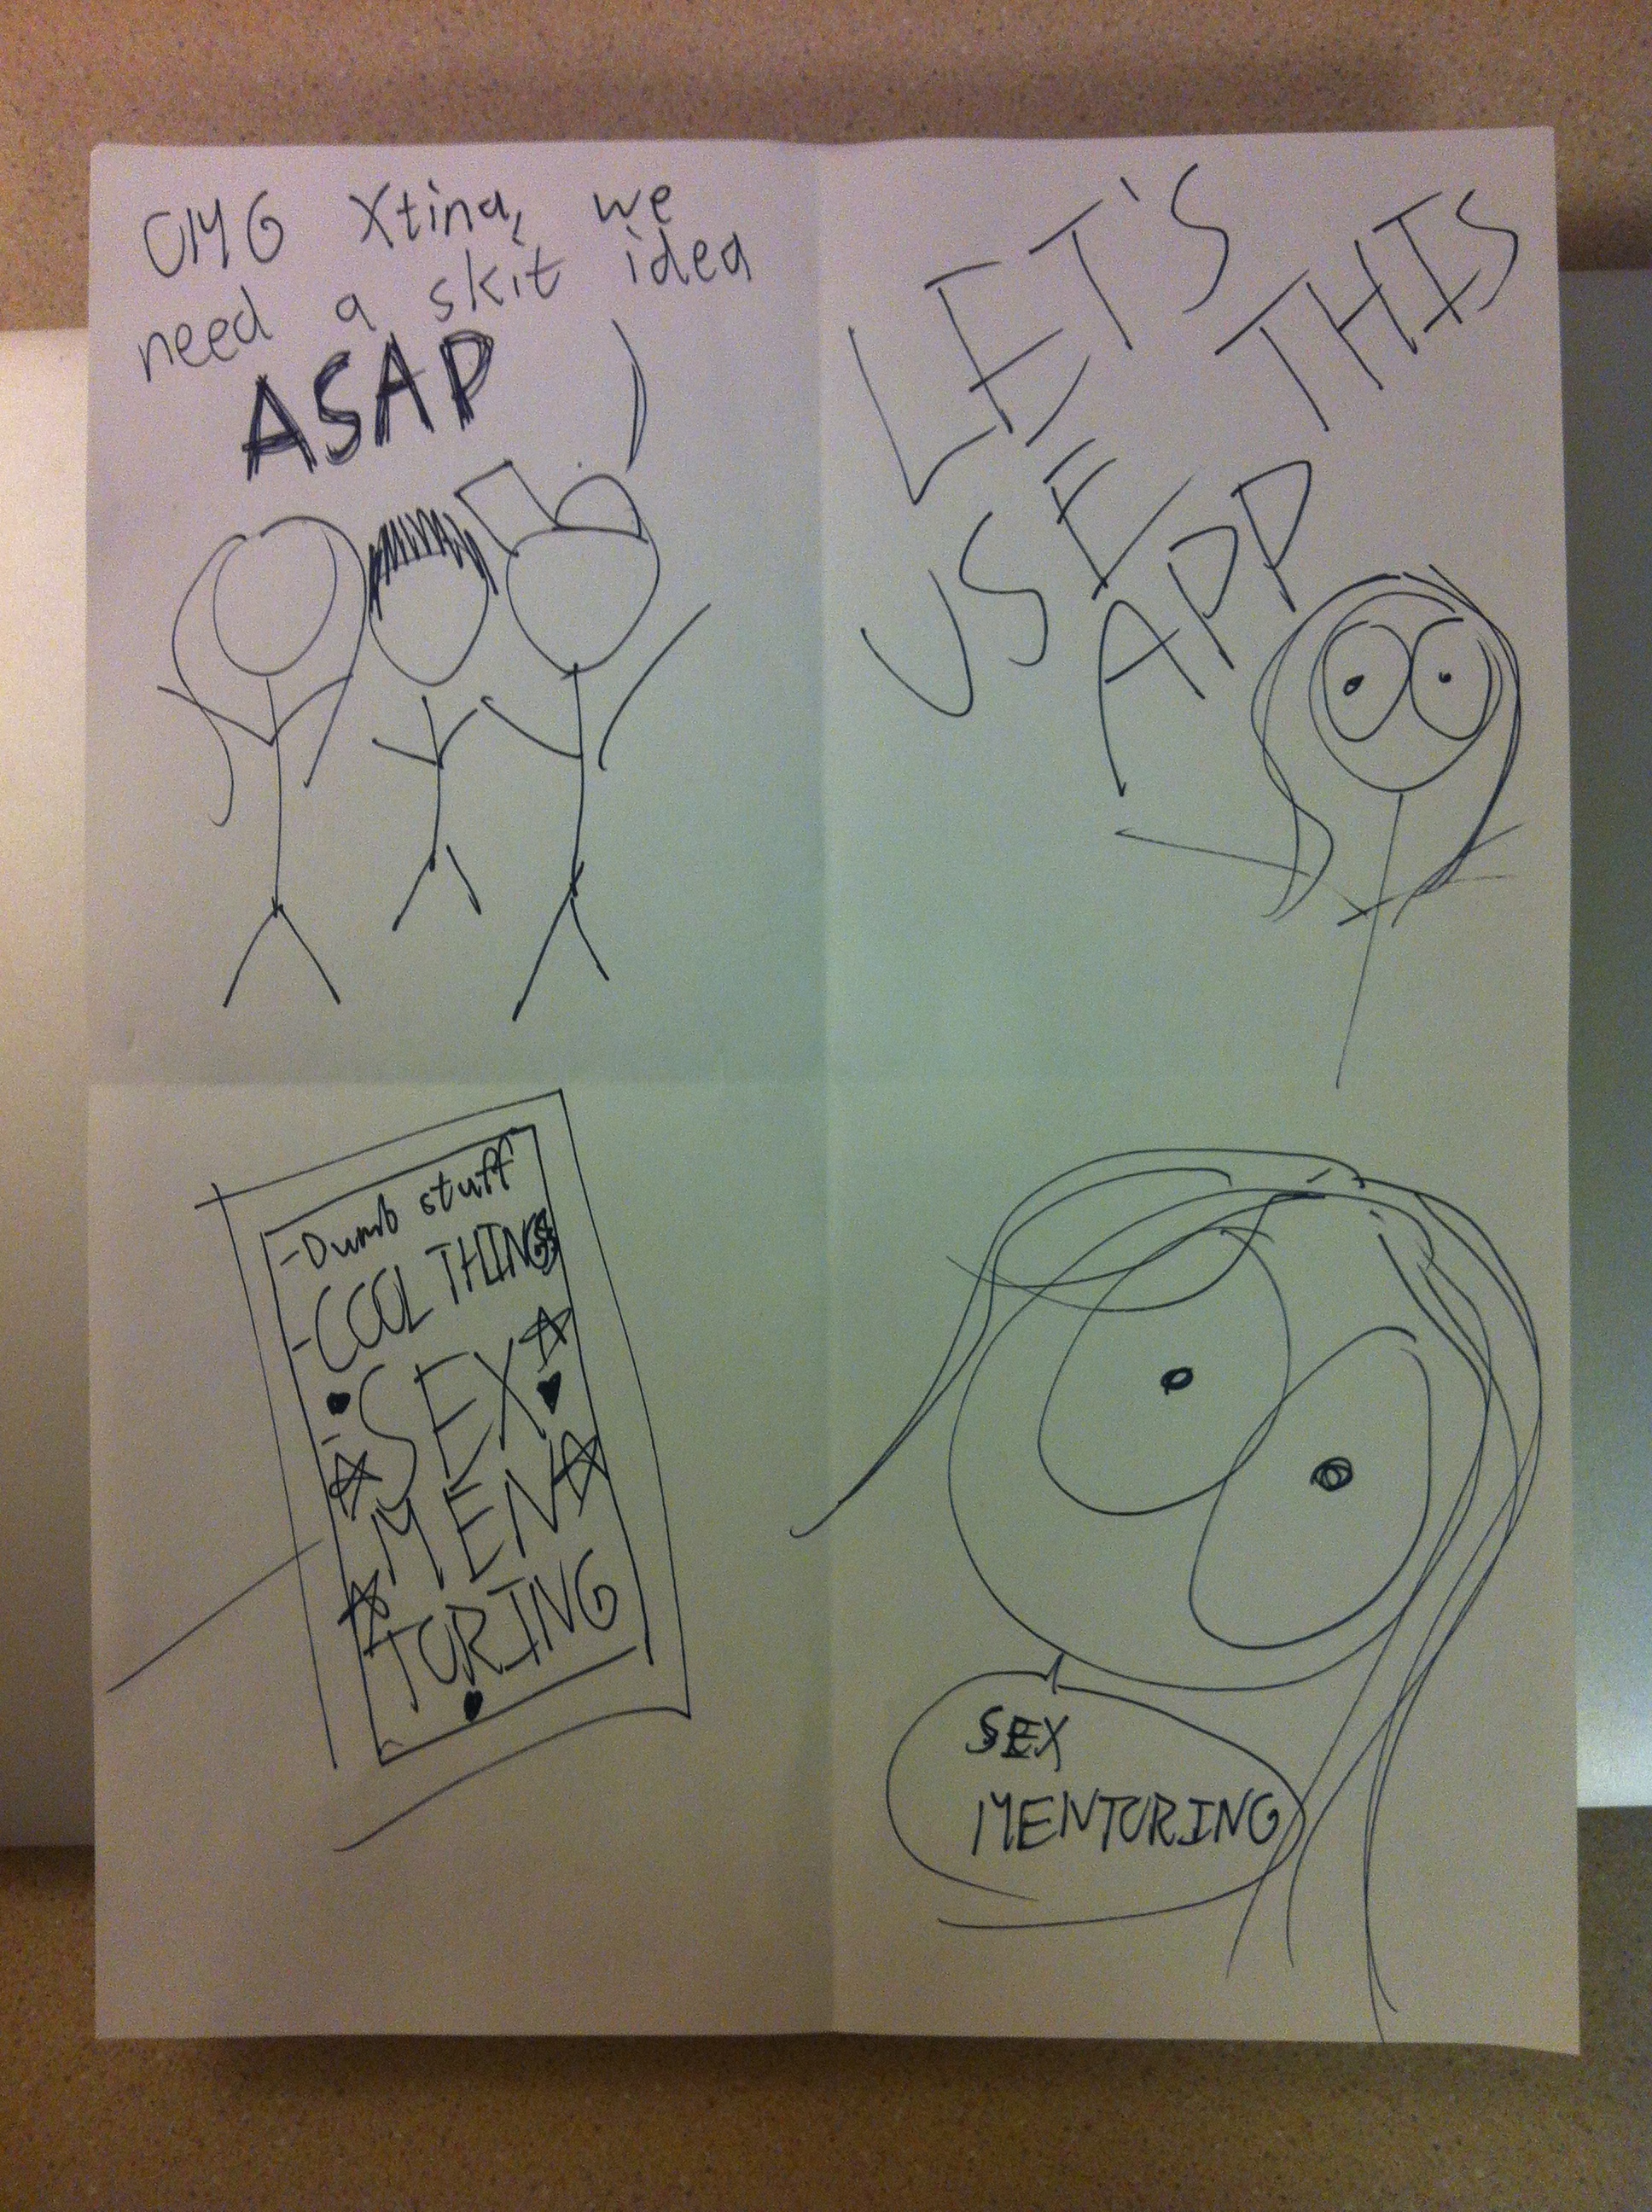 OMG Xtina, we
need a skit idea
ASAP
LET'S
USE THIS
APP
-Dumb stuff
-COOL THINGS
-SEX
MEN
TORING
SEX
MENTORING